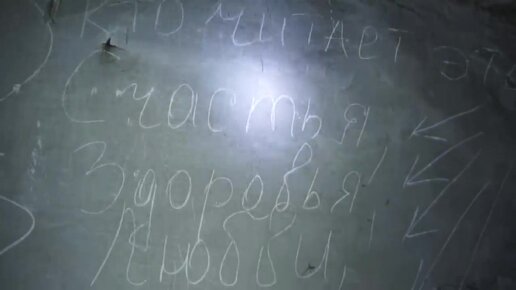 Кто читает это
Счастья,
Здоровья,
Любви,